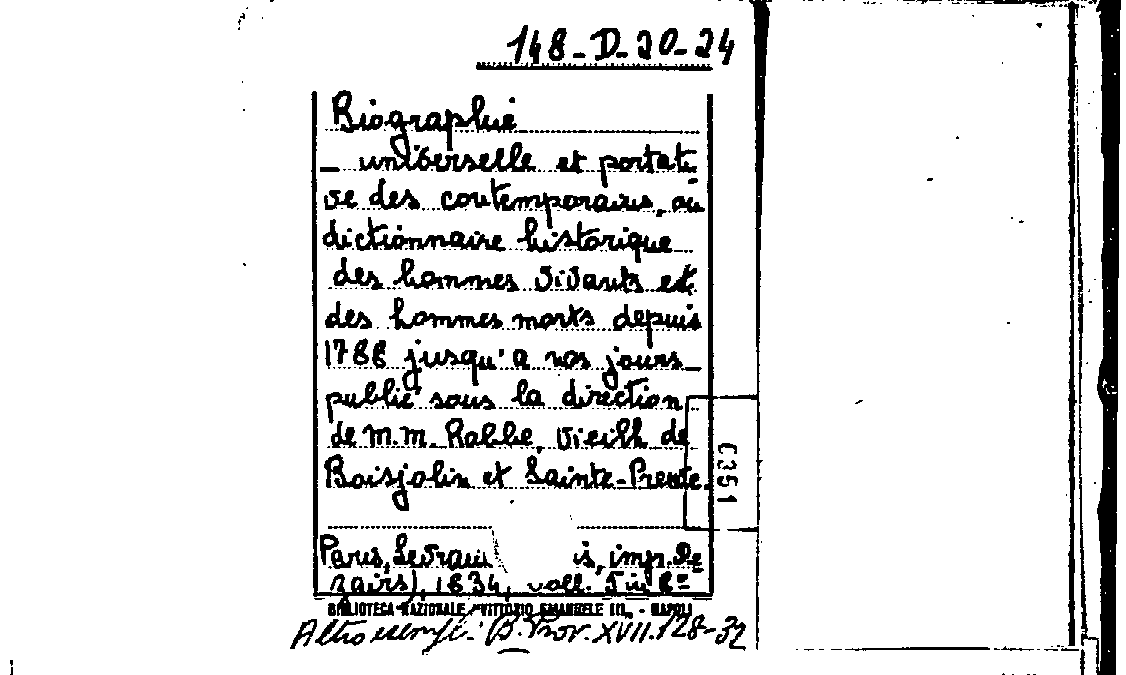 148-D-20-24
Biographie
_ universelle et portati
ve des contemporains, ou
dictionnaire historique
des hommes vivants et
des hommes morts depuis
1788 jusqu'a nos jours
publié sous la direction
de M.M. Rabbe, Vieilh de
Boisjolin et Sainte-Preuve.
0351
Paris, Levrau is, imp. De
zairs), 1834, voll. 5 in 8º
BIBLIOTECA NAZIONALE "VITTORIO EMANUELE III" - NAPOLI
Altro esempl.: B. Prov. XVII.128-32